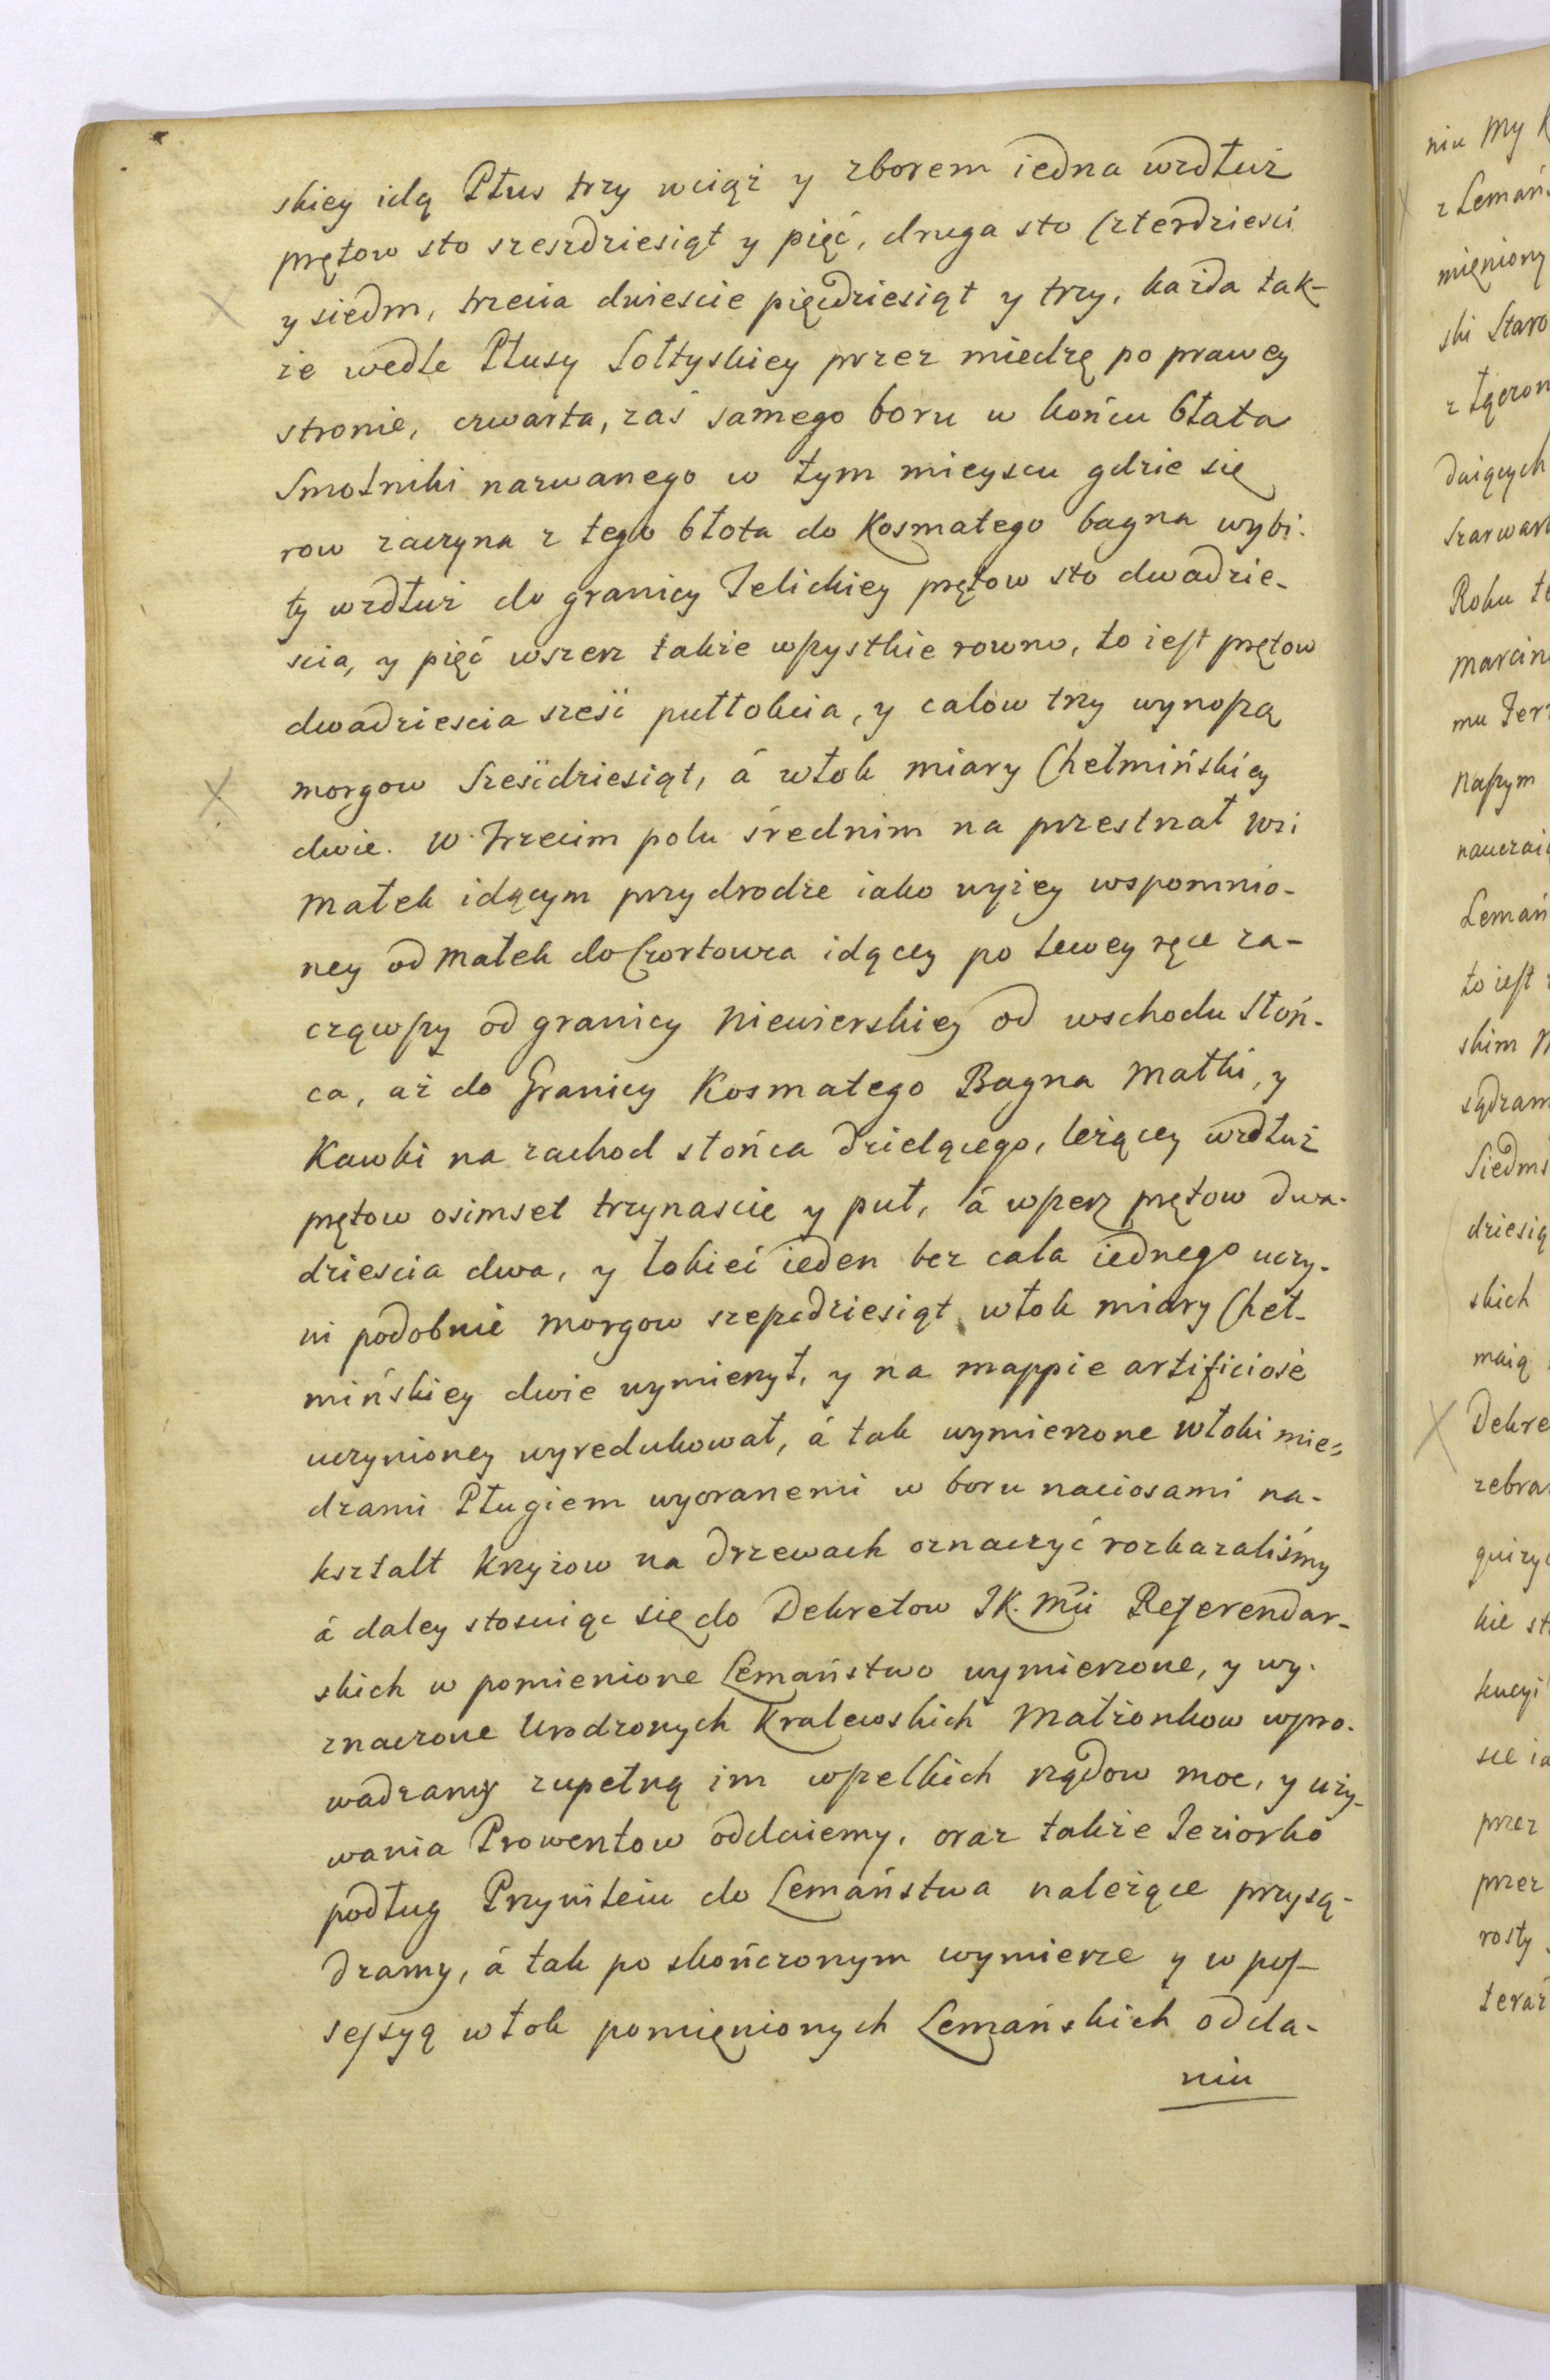 skiey idą Płus trzy wciąż y zborem iedna wzdłuż
prętow sto szeszdziesiąt y pięć, druga sto Czterdziesci
y siedm, trzecia dwiescie pięcdziesiąt y trzy, każda tak-
że wedle Płusy Sołtyskiey przez miedzę po prawey
stronie, czwarta, zaś samego boru w końcu błata
Smolniki nazwanego w tym mieyscu gdzie się
row zaczyna z tego błota do Kosmatego bagna wybi-
ty wzdłuż do granicy Jelickiey prętow sto dwadzie-
scia, y pięć wszerz także wszystkie rowno, to iest prętow
dwadziescia sześć pułtokcia, y calow trzy wynoszą
morgow Sześćdziesiąt, á włok miary Chełmińskiey
dwie. W trzecim polu średnim na przestrzał wsi
Małek idącym przy drodze iako wyżey wspomnio-
ney od Małek do Czortowza idącey po lewey ręce za-
cząwszy od granicy Niewierskiey od wschodu Słoń-
ca, aż do Granicy Kosmatego Bagna Małki, y
Kawki na zachod słońca dzielącego, leżącey wzdłuż
prętow osimset trzynascie y puł, á wszerz prętow dwa-
dziescia dwa, y łokieć ieden bez cala iednego uczy-
ni podobnie morgow szeszdziesiąt włok miary Cheł-
mińskiey dwie wymierzył, y na mappie artificiosè
uczynioney wyredukował, á tak wymierzone włoki mie-
dzami Pługiem wyoranemi w boru naciosami na-
kształt krzyżow na drzewach oznaczyć rozkazaliśmy
á daley stosuiąc się do Dekretow JK. Mći Referendar-
skich w pomienione Lemaństwo wymierzone, y wy-
znaczone Urodzonych Kralewskich Małżonkow wpro-
wadzamy zupełną im wszelkich rządow moc, y uży-
wania Prowentow oddaiemy, oraz także Jeziorko
podług Przywileiu do Lemaństwa należące przysą-
dzamy, á tak po skończonym wymierze y w pos-
sessyą włok pomięnionych Lemańskich odda-
niu
niu My
z Lemań
mięniony
ski Staro
duiących
Roku
Marcin
naszym
Lemań
to iest
skim
sądzam
Siedms
dziesią
skich
maią
Dekre
zebra
kucyi
przez
przez
rosty
teraź